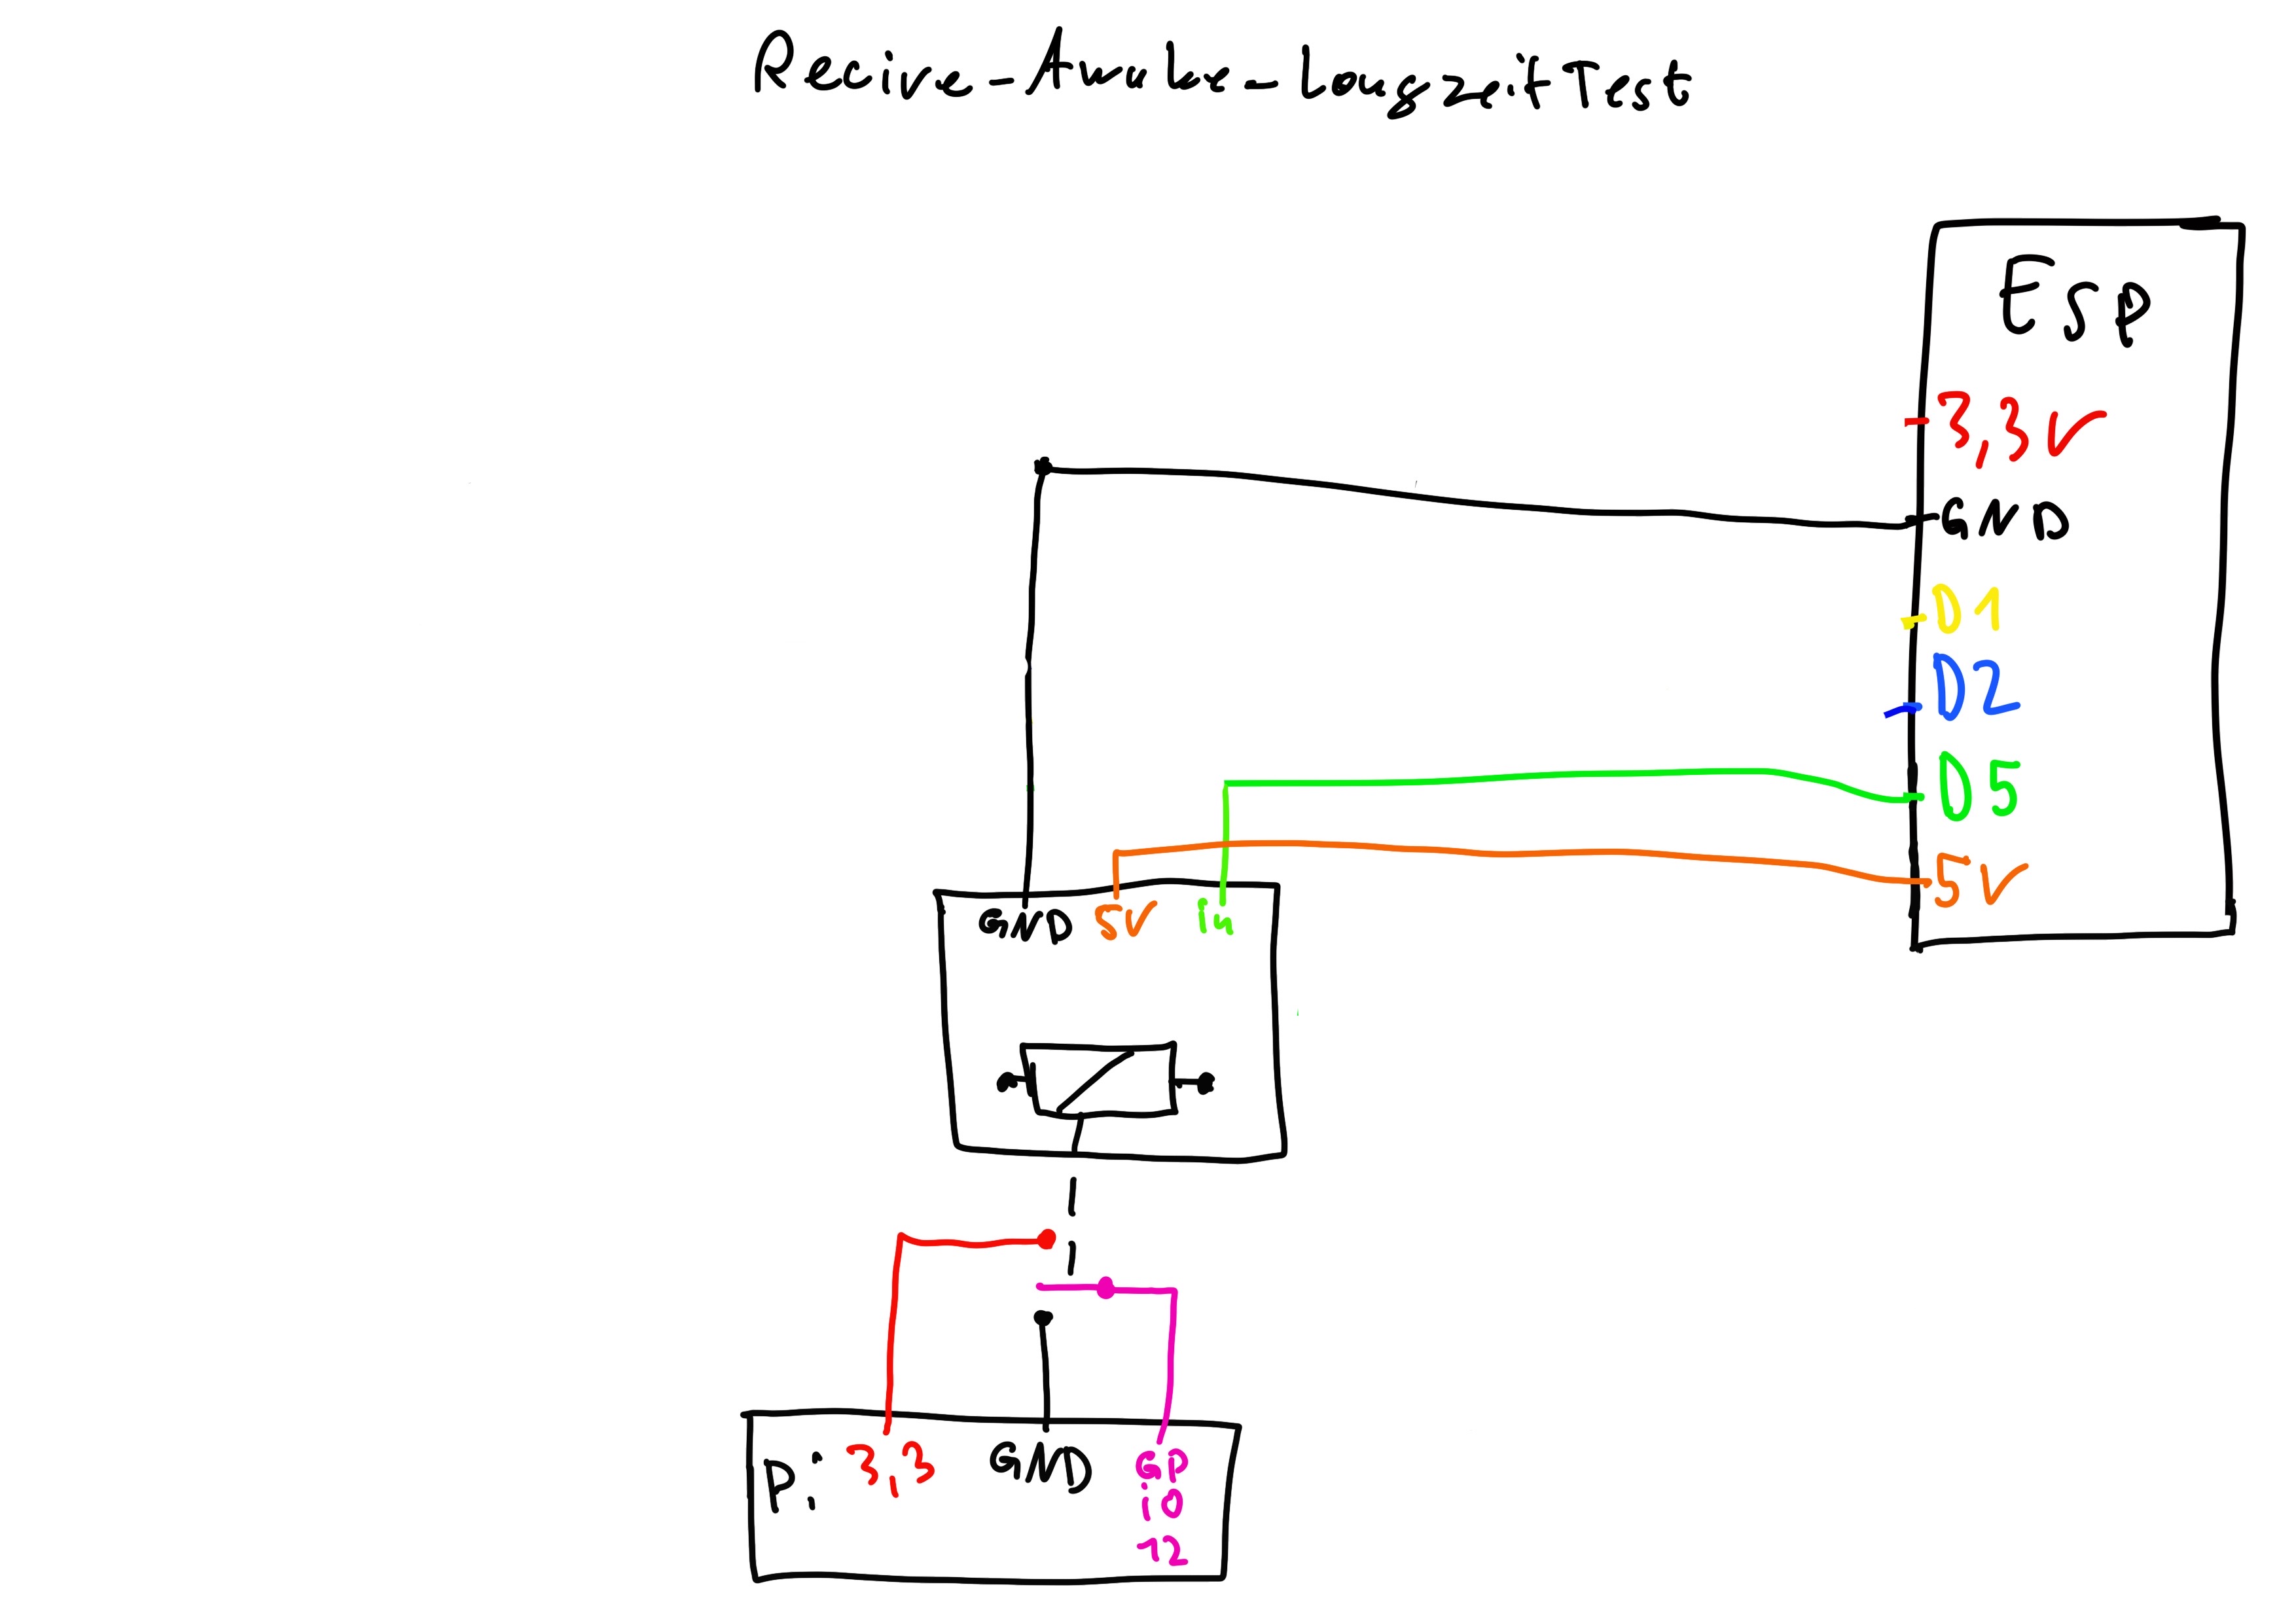 Recive-Awake-LangzeitTest
ESP
3,3V
GND
D1
D2
D5
5V
GND 5V in
Pi 3,3 GND GP
io
12